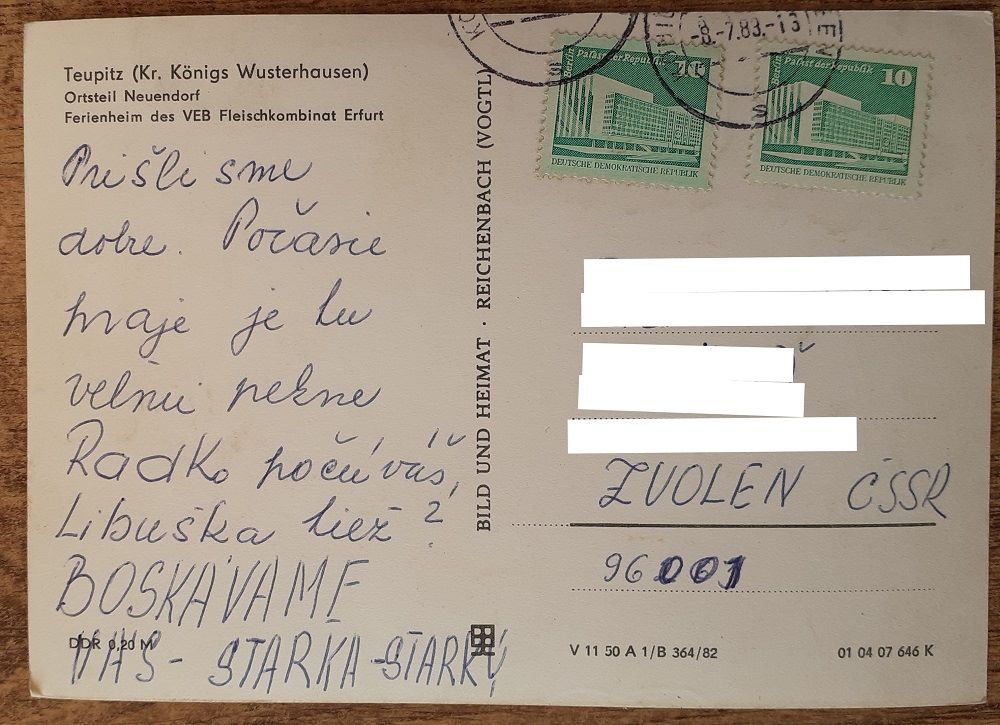 Teupitz (Kr. Königs Wusterhausen)
Ortsteil Neuendorf
Ferienheim des VEB Fleischkombinat Erfurt
Prišli sme
dobre. Počasie
hraje je tu
veľmi pekne
Radko počúvaš,
Libuška tiež?
BOSKÁVAME
VÁS - STARKA - STARKÝ
DDR 0,20 M
BILD UND HEIMAT · REICHENBACH (VOGTL)
-8.-7.83.-13
Berlin Palast der Republik 10
DEUTSCHE DEMOKRATISCHE REPUBLIK
Berlin Palast der Republik 10
DEUTSCHE DEMOKRATISCHE REPUBLIK
ZVOLEN ČSSR
96001
V 11 50 A 1/B 364/82
01 04 07 646 K